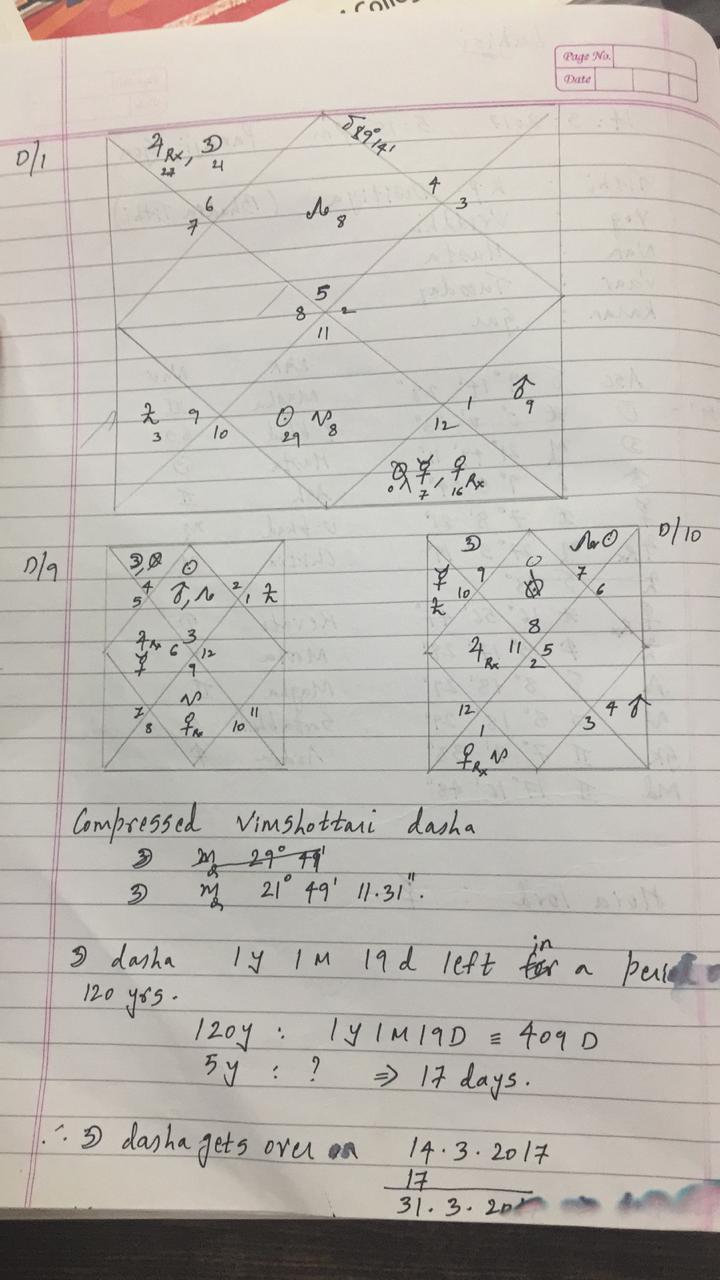 Page No.
Date
D/1
♃Rx, ☽
27 21
♂ 29° 14'
6
7
☊ 8
4
3
5
8 2
11
♄ 9
3 10
☉ ☋
29 8
1 ♂
12 9
☿, ♀Rx
7 16
D/9
☽,
☉
4
5
♂, ☊
2
1 ♄
♃Rx 6 3 12
☿ 9
☋
♀Rx
7
8
11
10
D/10
☽
☿ 10 9
♄
☊ ☉
7
6
8
♃Rx 11 5
2
12
1
♀Rx ☋
4 ♂
3
Compressed Vimshottari dasha
☽ ♍ 29° 49'
☽ ♍ 21° 49' 11.31".
☽ dasha 1y 1M 19d left in a period
120 yrs.
120y : 1y 1M 19D ≡ 409 D
5y : ? ⇒ 17 days.
∴ ☽ dasha gets over on 14.3.2017
17
31.3.20